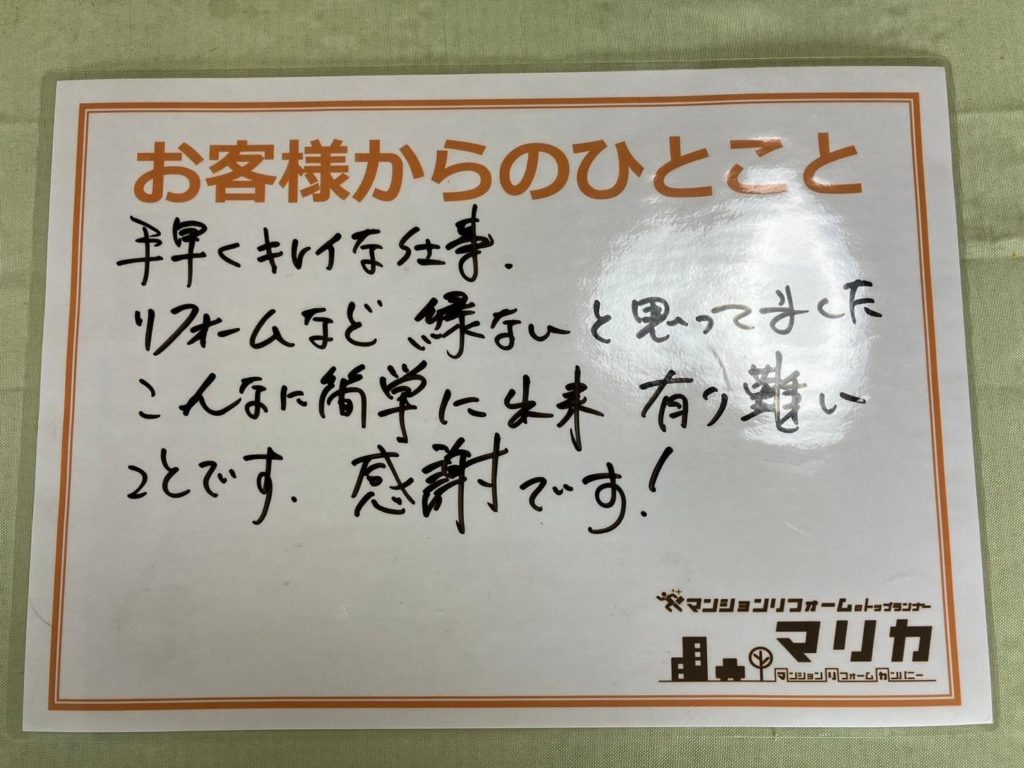 お客様からのひとこと
手早くキレイな仕事.
リフォームなど 縁ないと思ってました
こんなに簡単に出来 有り難い
ことです. 感謝です!
マンションリフォームのトップランナー
マリカ
マンションリフォームカンパニー